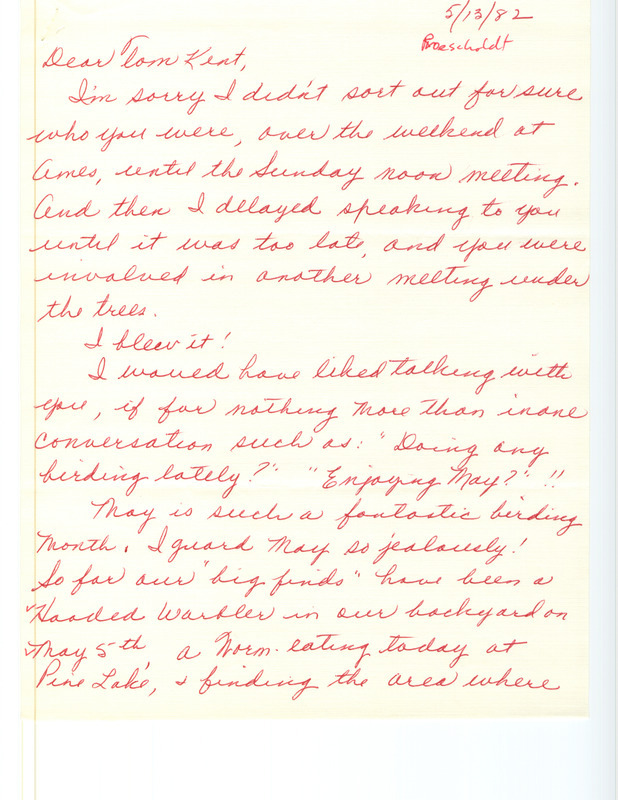 5/13/82
Proescholdt
Dear Tom Kent,
I'm sorry I didn't sort out for sure
who you were, over the weekend at
Ames, until the Sunday noon meeting.
And then I delayed speaking to you
until it was too late, and you were
involved in another meeting under
the trees.
I blew it!
I would have liked talking with
you, if for nothing more than inane
conversation such as: "Doing any
birding lately?" "Enjoying May?" !!
May is such a fantastic birding
month. I guard May so jealously!
So far our "big finds" have been a
✓Hooded Warbler in our backyard on
✓May 5th a Worm-eating today at
Pine Lake, & finding the area where